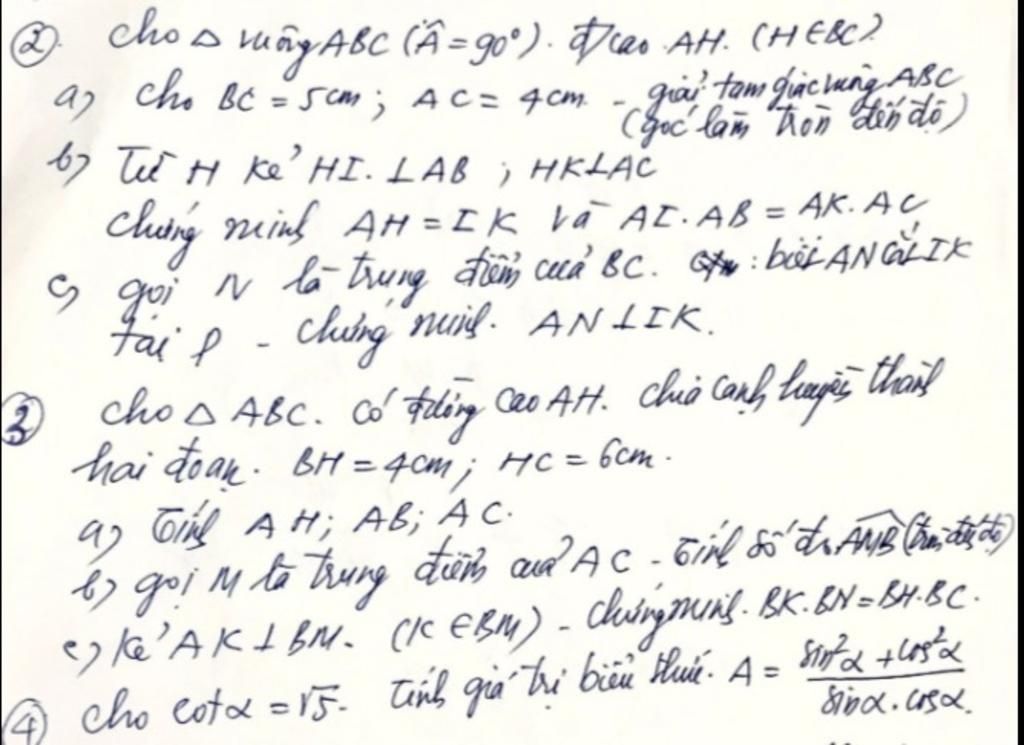 ② Cho △ vuông ABC (Â = 90°). Đ/cao AH. (H ∈ BC)
a) Cho BC = 5cm; AC = 4cm - giải tam giác vuông ABC
(góc làm tròn đến độ)
b) Từ H kẻ HI ⊥ AB; HK ⊥ AC
Chứng minh AH = IK và AI.AB = AK.AC
c) gọi N là trung điểm của BC. : biết AN cắt IK
tại P - Chứng minh. AN ⊥ IK.
③ Cho △ ABC. Có đường cao AH. chia cạnh huyền thành
hai đoạn. BH = 4cm; HC = 6cm.
a) Tính AH; AB; AC.
b) gọi M là trung điểm của AC - Tính số đo AMB (tròn đến độ)
c) Kẻ AK ⊥ BM. (K ∈ BM) - Chứng minh. BK.BN = BH.BC.
④ Cho cotα = √5. Tính giá trị biểu thức. A = (sin²α + cos²α)/(sinα.cosα.)